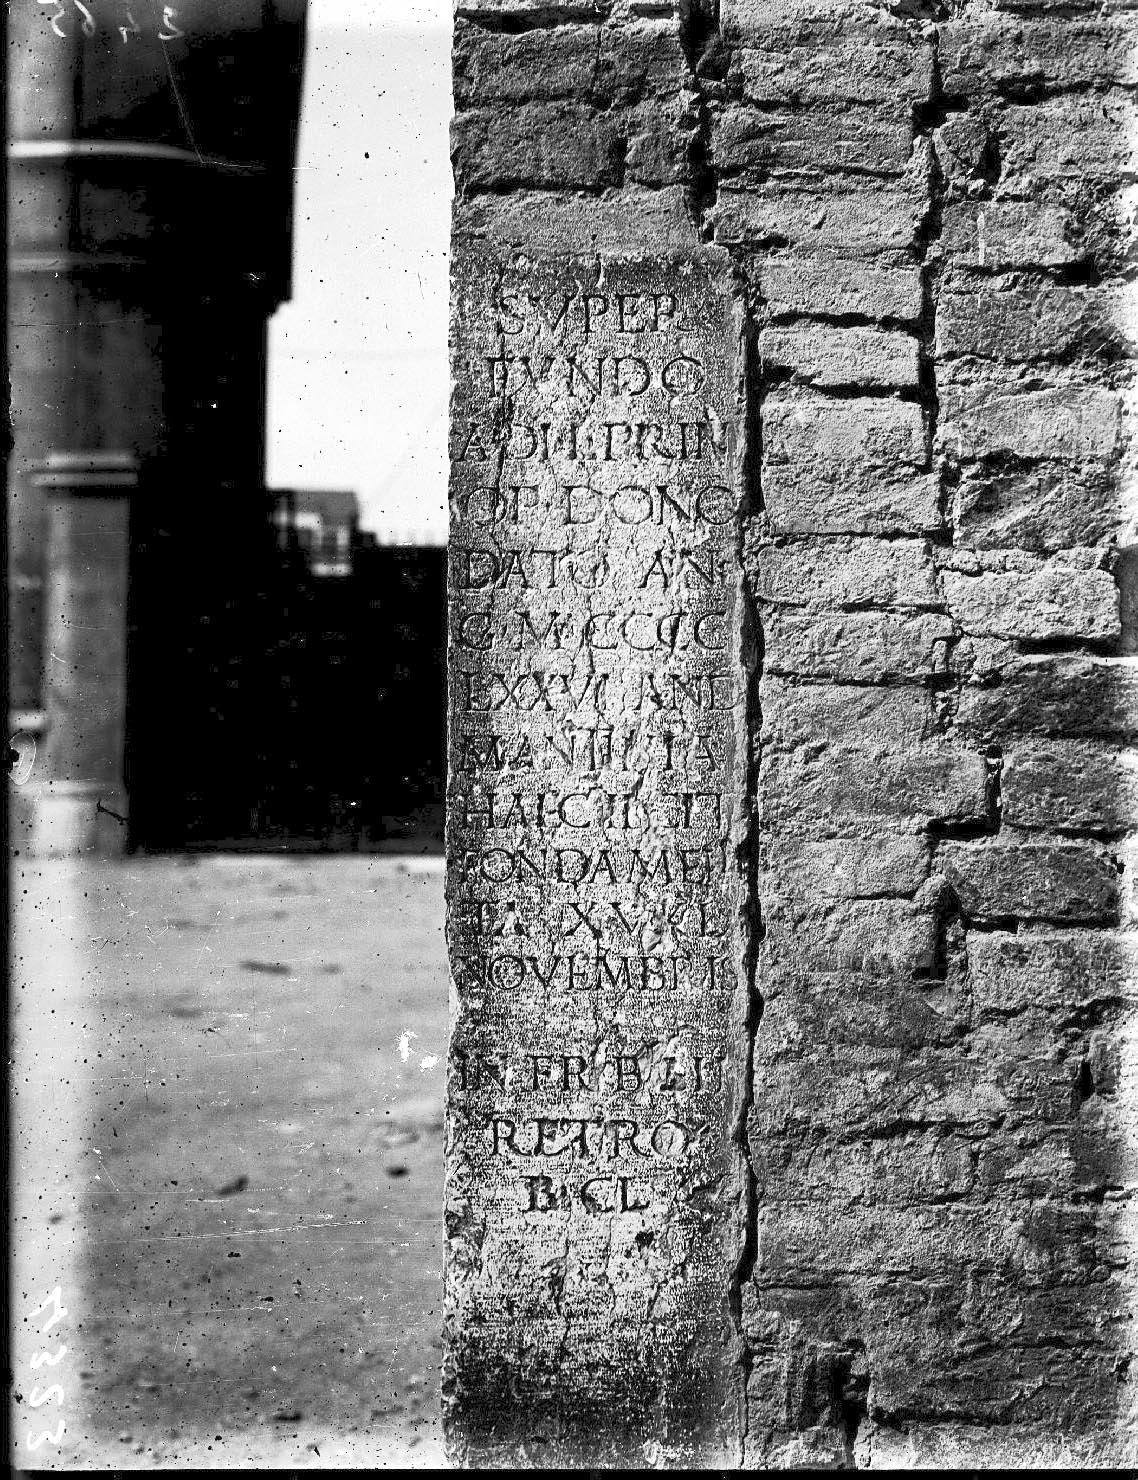 SVPER
FVNDO
A DIL PRIN
OP DONO
DATO AN
G M CCCC
LXXVI AND
MANT
FONDAMEN
TA XV KL
NOVEMBRIS
IN FR B
RETRO
B CL